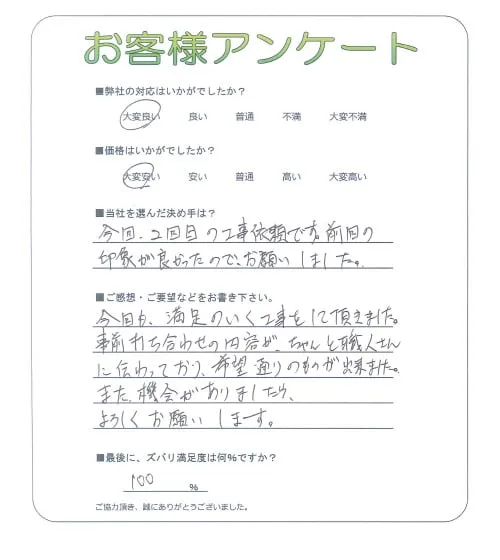 お客様アンケート
■弊社の対応はいかがでしたか？
大変良い 良い 普通 不満 大変不満
■価格はいかがでしたか？
大変安い 安い 普通 高い 大変高い
■当社を選んだ決め手は？
今回、2回目の工事依頼です。前回の
印象が良かったので、お願いしました。
■ご感想・ご要望などをお書き下さい。
今回も、満足のいく工事をして頂きました。
事前打ち合わせの内容が、ちゃんと職人さん
に伝わっており、希望通りのものが出来ました。
また、機会がありましたら、
よろしくお願いします。
■最後に、ズバリ満足度は何%ですか？
100 %
ご協力頂き、誠にありがとうございました。